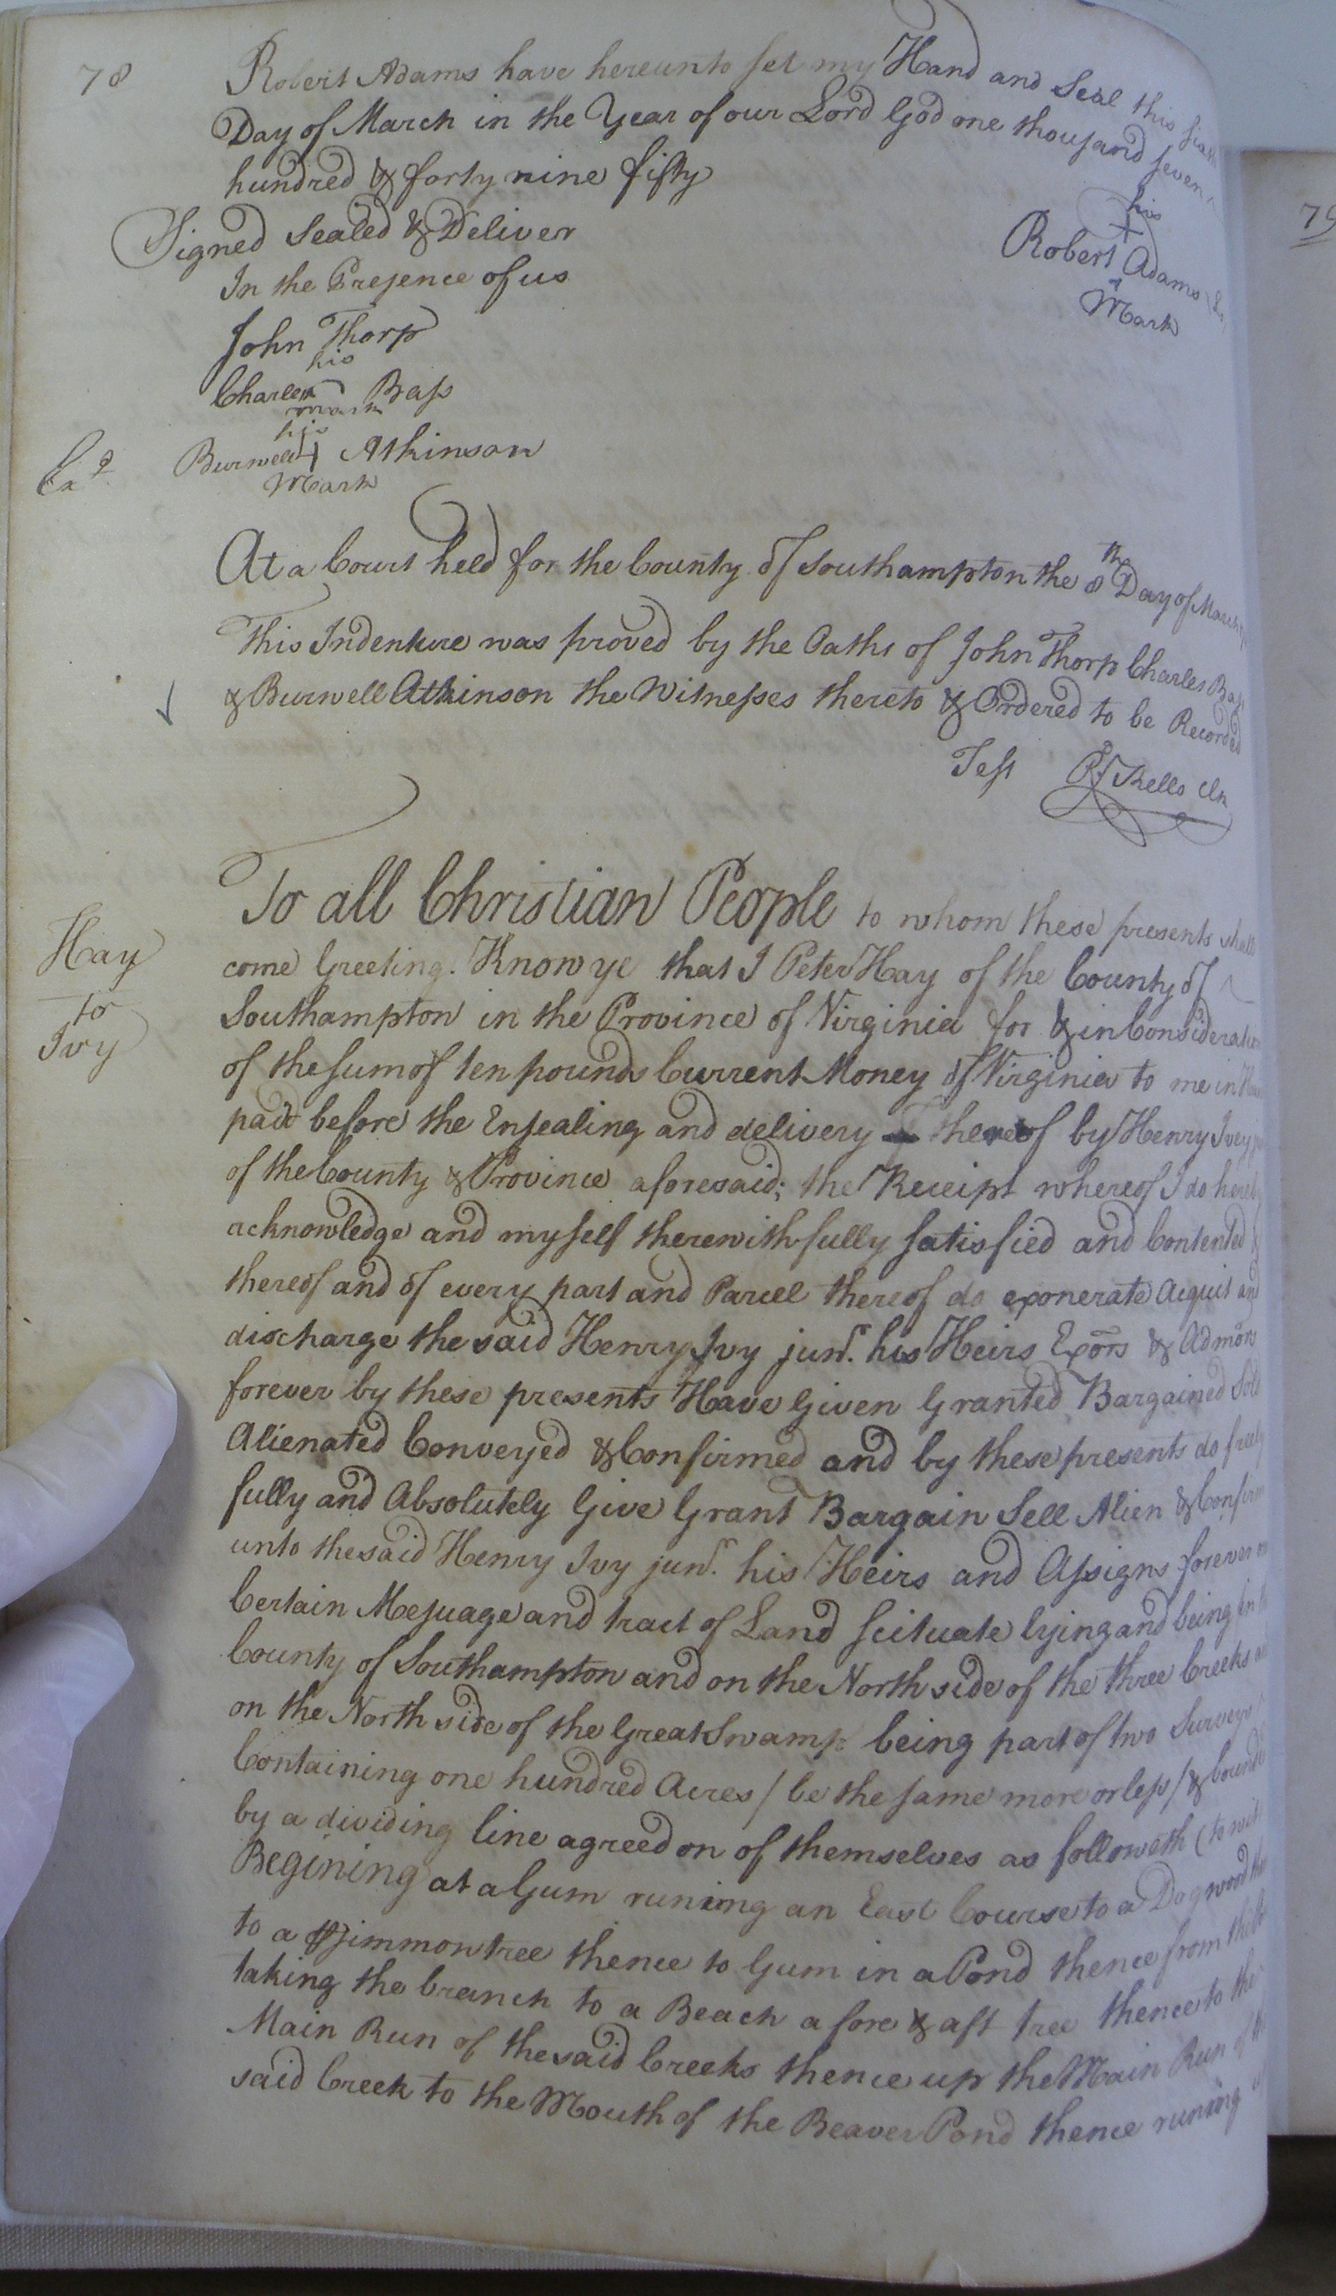 78
Robert Adams have hereunto set my Hand and Seal this
Day of March in the Year of our Lord God one thousand seven
hundred & forty nine fifty
Signed Sealed & Deliver
In the Presence of us
his
Robert + Adams
Mark
John Thorp
his
Charles Bass
mark
his
Burwell Atkinson
Mark
Exd
At a Court held for the County of Southampton the 8th Day of March
This Indenture was proved by the Oaths of John Thorp Charles Bass
& Burwell Atkinson the Witnesses thereto & Ordered to be Recorded
Test Rd Kello Clk
Hay
to
Ivy
To all Christian People to whom these presents shall
come Greeting. Know ye that I Peter Hay of the County of
Southampton in the Province of Virginia for & in Consideration
of the sum of ten pounds Current Money of Virginia to me in
paid before the Ensealing and delivery thereof by Henry Ivey
of the County & Province aforesaid; the Receipt whereof I do hereby
acknowledge and myself therewith fully satisfied and Contented &
thereof and of every part and Parcel thereof do exonerate Acquit and
discharge the said Henry Ivy junr. his Heirs Exōrs & Admōn
forever by these presents Have Given Granted Bargained Sold
Alienated Conveyed & Confirmed and by these presents do freely
fully and Absolutely Give Grant Bargain Sell Alien & Confirm
unto the said Henry Ivy junr. his Heirs and Assigns forever
Certain Mesuage and tract of Land scituate lying and being in
County of Southampton and on the North side of the three Creeks
on the North side of the Great Swamp being part of two Surveys
Containing one hundred Acres / be the same more or less / & bounded
by a dividing line agreed on of themselves as followeth (to wit
Begining at a Gum runing an East Course to a Dogwood
to a sjimmon tree thence to Gum in a Pond thence from
taking the branch to a Beach a fore & aft tree thence to the
Main Run of the said Creeks thence up the Main Run of
said Creek to the Mouth of the Beaver Pond thence runing
79